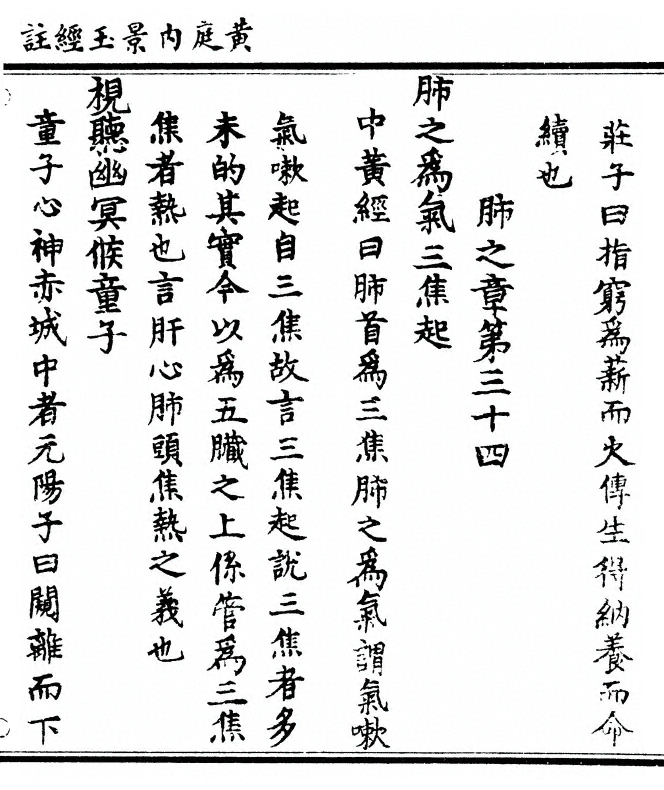 黃庭內景玉經註
莊子曰指窮爲薪而火傳生得納養而命
續也
肺之章第三十四
肺之爲氣三焦起
中黃經曰肺首爲三焦肺之爲氣謂氣嗽
氣嗽起自三焦故言三焦起說三焦者多
未的其實今以爲五臟之上係管爲三焦
焦者熱也言肝心肺頭焦熱之義也
視聽幽冥候童子
童子心神赤城中者元陽子曰闚離而下